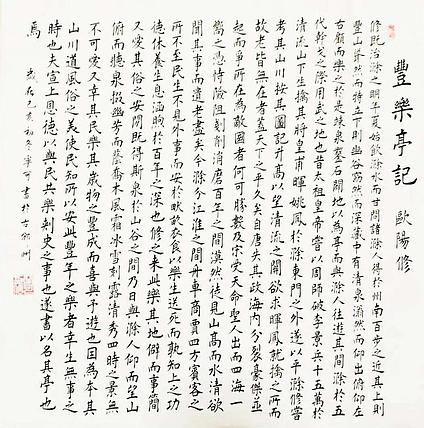 豐樂亭記 歐陽修
修既治滁之明年夏始飲滁水而甘問諸滁人得於州南百步之近其上則
豐山聳然而特立下則幽谷窈然而深藏中有清泉滃然而仰出俯仰左
右顧而樂之於是疏泉鑿石闢地以為亭而與滁人往遊其間滁於五
代幹戈之際用武之地也昔太祖皇帝嘗以周師破李景兵十五萬於
清流山下生擒其將皇甫暉姚鳳於滁東門之外遂以平滁修嘗
考其山川按其圖記升高以望清流之關欲求暉鳳就擒之所而
故老皆無在者蓋天下之平久矣自唐失其政海內分裂豪傑並
起而爭所在為敵國者何可勝數及宋受天命聖人出而四海一
嚮之憑恃險阻剗削消磨百年之間漠然徒見山高而水清欲
問其事而遺老盡矣今滁介江淮之間舟車商賈四方賓客之
所不至民生不見外事而安於畎畝衣食以樂生送死而孰知上之功
德休養生息涵煦於百年之深也修之來此樂其地僻而事簡
又愛其俗之安閒既得斯泉於山谷之間乃日與滁人仰而望山
俯而聽泉掇幽芳而蔭喬木風霜冰雪刻露清秀四時之景無
不可愛又幸其民樂其歲物之豐成而喜與予遊也因為本其
山川道風俗之美使民知所以安此豐年之樂者幸生無事之
時也夫宣上恩德以與民共樂刺史之事也遂書以名其亭也
焉
歲在己亥初冬寧可書於古州